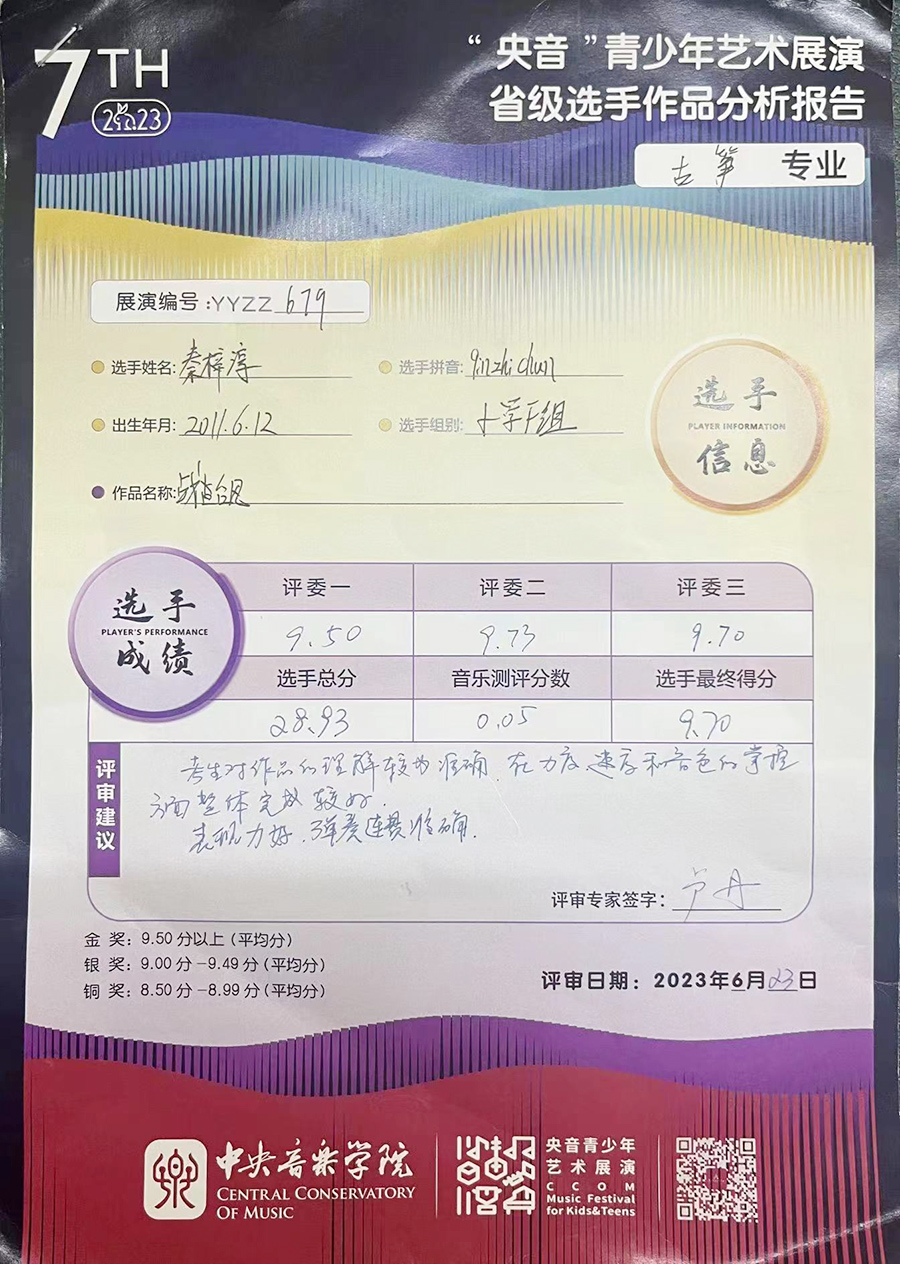 7TH
2023
“央音”青少年艺术展演
省级选手作品分析报告
古筝 专业
展演编号:YYZZ 679
选手姓名:秦梓淳
选手拼音:qinzhi chun
出生年月:2011.6.12
选手组别:小学F组
选手
PLAYER INFORMATION
信息
作品名称:战台风
选手
PLAYER'S PERFORMANCE
成绩
评委一 评委二 评委三
9.50 9.73 9.70
选手总分 音乐测评分数 选手最终得分
28.93 0.05 9.70
评审建议
考生对作品的理解较为准确,在力度、速度和音色的掌握
方面整体完成较好.
表现力好,弹奏连贯准确.
评审专家签字:
金 奖:9.50 分以上(平均分)
银 奖:9.00 分-9.49 分(平均分)
铜 奖:8.50 分-8.99 分(平均分)
评审日期:2023年6月23日
中央音乐学院
CENTRAL CONSERVATORY
OF MUSIC
央音青少年
艺术展演
CCOM
Music Festival
for Kids&Teens